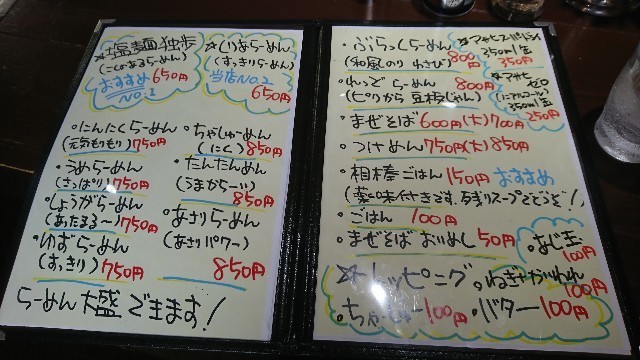 ☆塩麺独歩
(こくのあるらーめん)
おすすめ650円
NO.1
☆しおらーめん
(すっきりらーめん)
当店NO.2
650円
・にんにくらーめん
(元気もりもり)750円
・うめらーめん
(さっぱり)750円
・しょうがらーめん
(あったまる〜)750円
・ゆずらーめん
(すっきり)750円
・ちゃしゅーめん
(にく)850円
・たんたんめん
(うまからーい)
850円
・あさりらーめん
(あさりパワー)
850円
らーめん大盛できます!
・ぶらっくらーめん
(和風のりわさび)800円
・れっどらーめん 800円
(ピリから豆板じゃん)
・まぜそば600円(大)700円
・つけめん750円(大)850円
・相棒ごはん150円おすすめ
・ごはん 100円
・まぜそばおいめし50円
350ml缶
350円
350ml缶
250円
・あじ玉
100円
☆トッピング
・ねぎやかいわれ
100円
・ちゃーしゅー100円
・バター100円